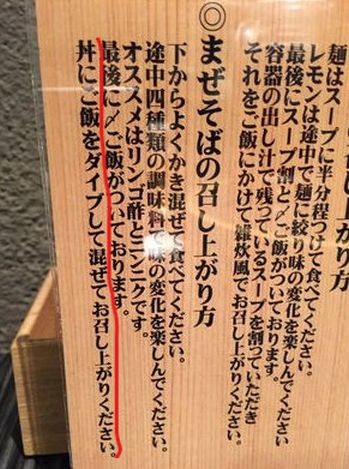 麺はスープに半分程つけて食べてください。
レモンは途中で麺に絞り味の変化を楽しんでください。
最後にスープ割と〆ご飯がついております。
容器の出し汁で残っているスープを割っていただき
それをご飯にかけて雑炊風でお召し上がりください。
◎まぜそばの召し上がり方
下からよくかき混ぜて食べてください。
途中四種類の調味料で味の変化を楽しんでください。
オススメはリンゴ酢とニンニクです。
最後に〆ご飯がついております。
丼にご飯をダイブして混ぜてお召し上がりください。